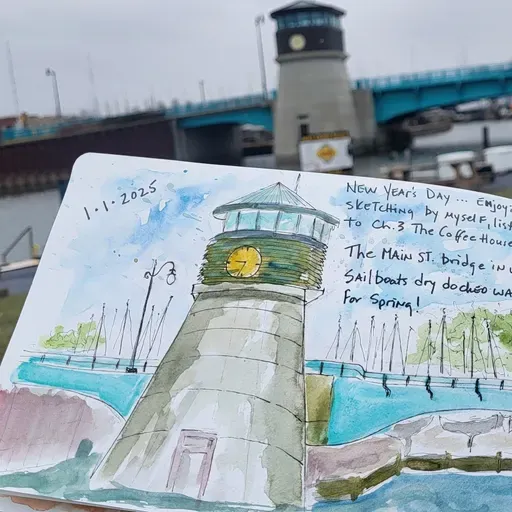 1.1.2025
NEW YEAR'S DAY ... ENJOYI
SKETCHING BY MYSELF, LIST
TO CH.3 THE COFFEE HOUSE
THE MAIN ST. bridge IN W
SAILBOATS dRY docked WA
FOR SPRING!